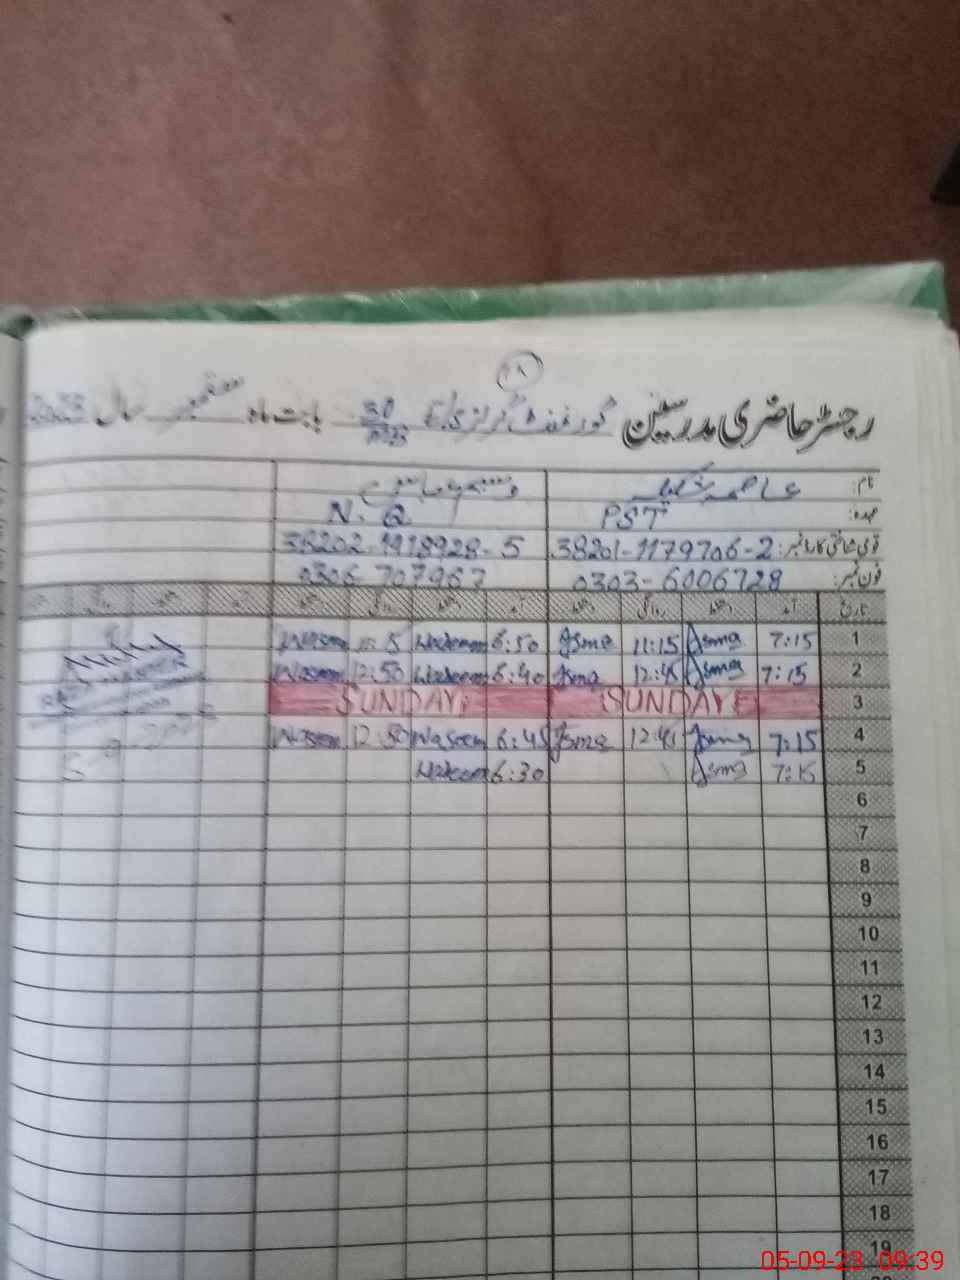 ۱۸
رجسٹر حاضری مدرسین گورنمنٹ گرلز بابت ماہ ستمبر سال 2023
نام: عاصمہ شکیلہ
عہدہ: PST N.Q
قومی شناختی کارڈ نمبر: 38201-1179706-2 38202-1918928-5
فون نمبر: 0303-6006728 0306-707967
تاریخ آمد دستخط روانگی دستخط آمد دستخط روانگی دستخط
1 7:15 Asma 11:15 Asma 6:50 Waseem Waseem
2 7:15 Asma 12:45 Asma 6:40 Waseem 12:50 Waseem
3 SUNDAY SUNDAY
4 7:15 Asma 12:45 Asma 6:45 Waseem 12:50 Waseem
5 7:15 Asma 6:30 Waseem
6
7
8
9
10
11
12
13
14
15
16
17
18
19
05-09-23 09:39